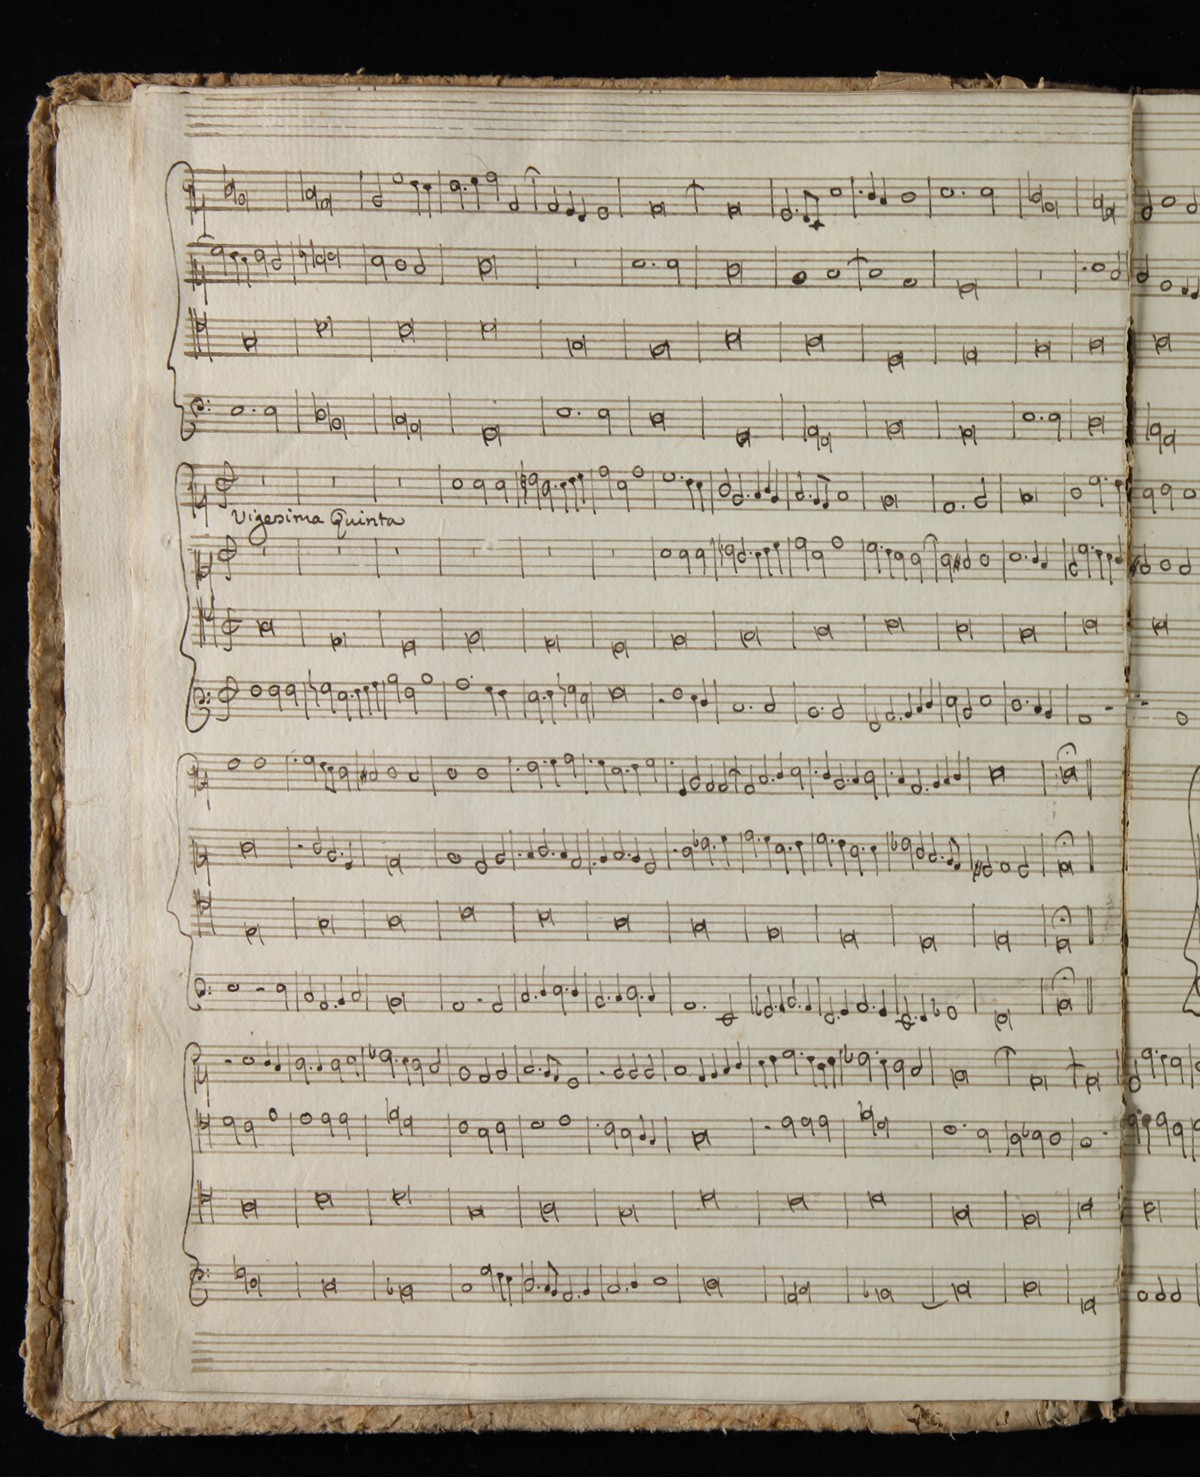 Vigesima Quinta